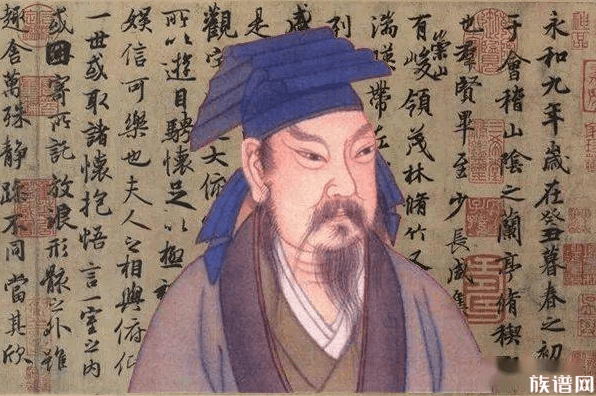 永和九年歲在癸丑暮春之初
于會稽山陰之蘭亭脩稧
也群賢畢至少長咸
有崇山峻領茂林脩竹又
湍暎帶左
列
盛
是
觀宇 大俯
所以遊目騁懷足以極
娛信可樂也夫人之相與俯仰
一世或取諸懷抱悟言一室之內
或因寄所託放浪形骸之外雖
趣舍萬殊靜躁不同當其欣
族谱网